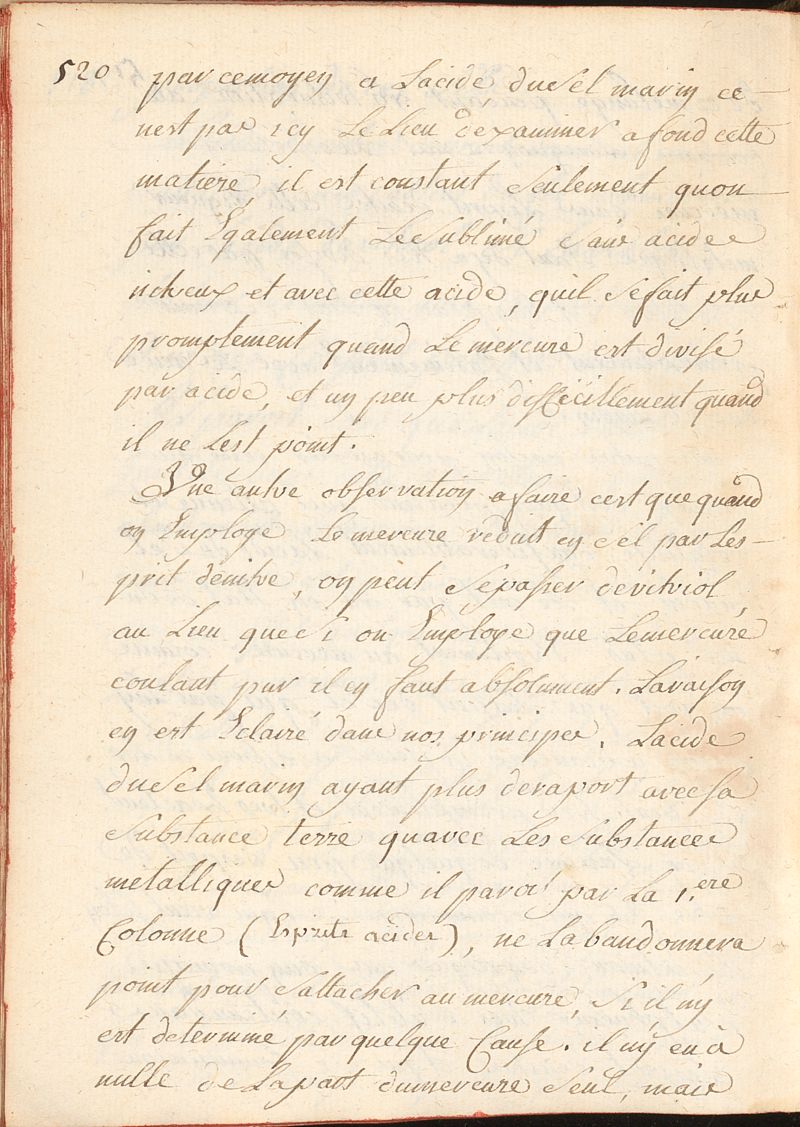 520 par cemoyen a Lacide duSel marin ce
nest pas icy Le Lieu déxaminer afond cette
matiere, il est constant Seulement quon
fait Egalement LeSublimé Sans acide
nitreux et avec cette acide, quil Sefait plus
promptement quand Lemercure est divisé
par acide, et un peu plus difficillement quand
il ne Lest point.
Une autre observation afaire cest que quand
on Employe Lemercure reduit en Sel par Les-
prit denitre, on peut Sepasser devitriol
au Lieu que Si on Employe que Lemercure
coulant pur il en faut absolument. Laraison
en est Eclairé dans nos principes. Lacide
duSel marin ayant plus deraport avec Sa
Substance terre quavec Les Substances
metalliques comme il paroi par La 1.ere
Colonne (Esprits acides), ne Labandonnera
point pour Sattacher au mercure, Si il n'y
est determiné par quelque Cause. il n'y en à
nulle de Lapart dumercure Seul, mais